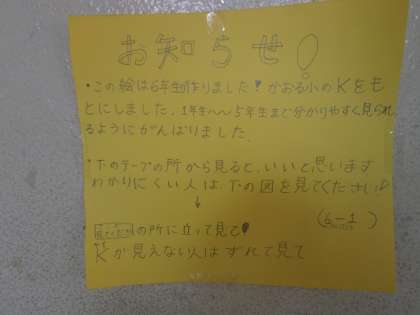 お知らせ!
・この絵は6年生が作りました!かおる小のKをも
とにしました。1年生〜5年生まで分かりやすく見られ
るようにがんばりました。
・下のテープの所から見ると、いいと思います
わかりにくい人は、下の図を見てください!
↓
の所に立って見て!
(6-1)
Kが見えない人はずれて見て